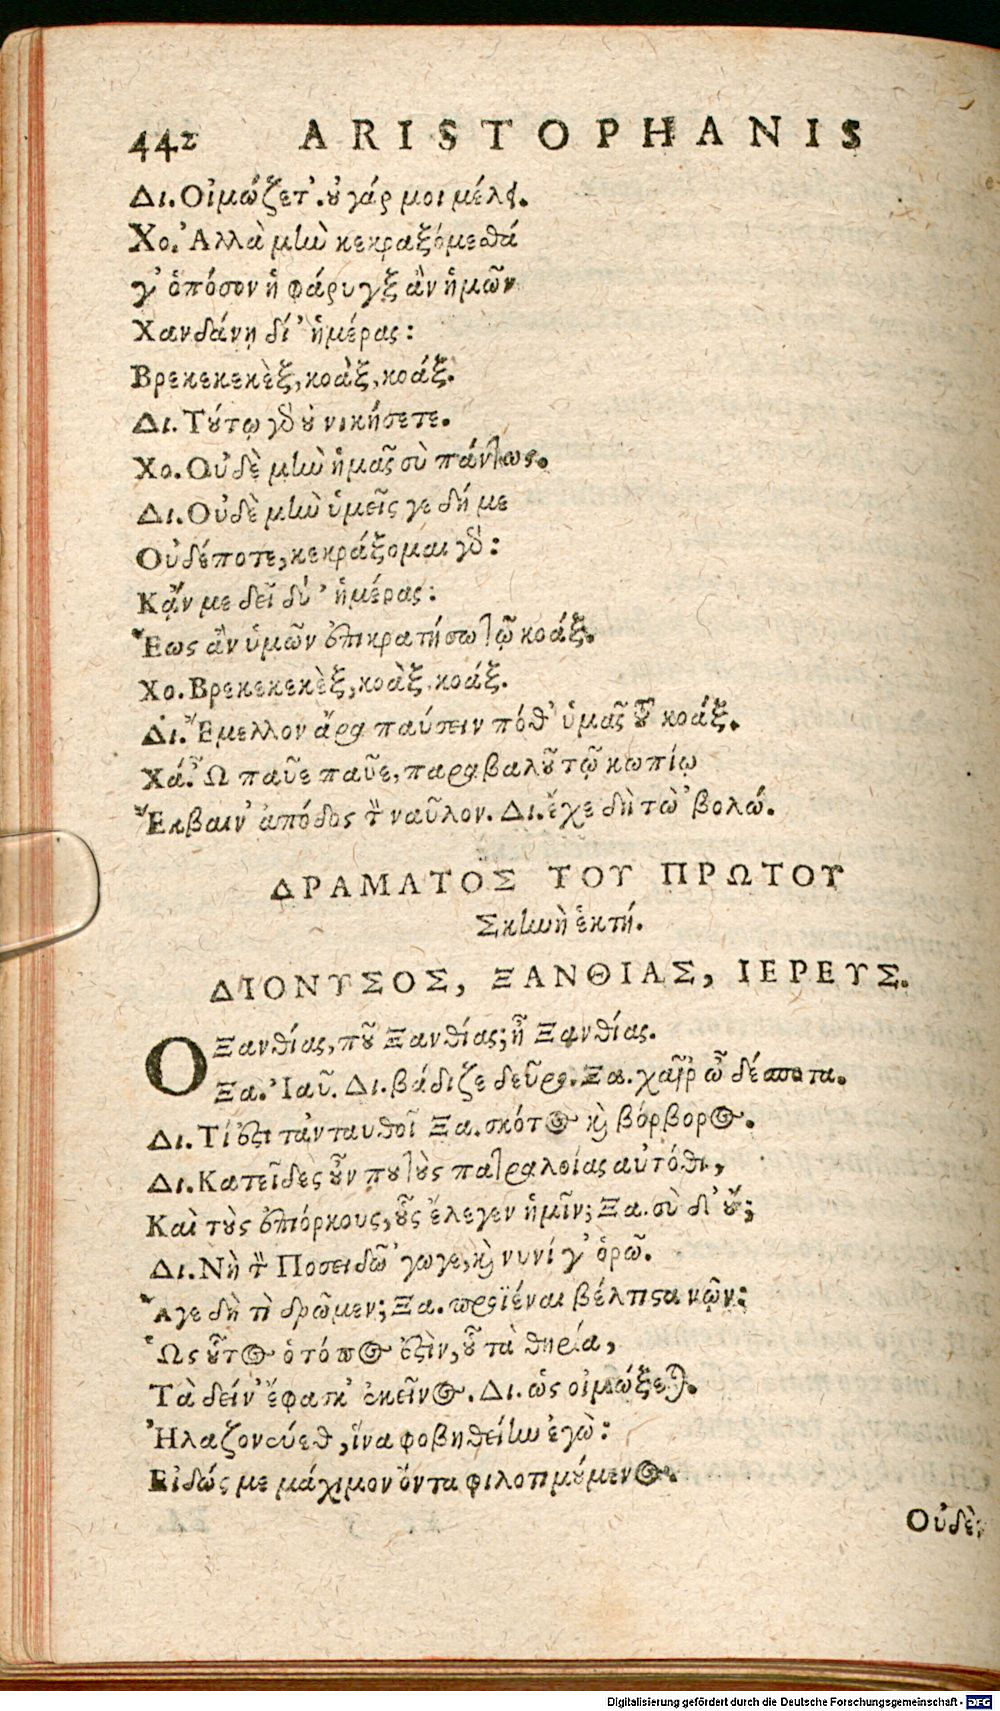 442 ARISTOPHANIS
Δι. Οἰμώζετ᾽. οὐ γάρ μοι μέλει.
Χο. Ἀλλὰ μὴν κεκραξόμεσθά
γ᾽ ὁπόσον ἡ φάρυγξ ἂν ἡμῶν
Χανδάνῃ δι᾽ ἡμέρας:
Βρεκεκεκὲξ, κοὰξ, κοάξ.
Δι. Τούτῳ γὸ οὐ νικήσετε.
Χο. Οὐδὲ μὴν ἡμᾶς σὺ πάντως.
Δι. Οὐδὲ μὴν ὑμεῖς γε δή με
Οὐδέποτε, κεκράξομαι γὸ:
Κᾄν με δεῖ δι᾽ ἡμέρας:
Ἕως ἂν ὑμῶν ἐπικρατήσω τῷ κοάξ.
Χο. Βρεκεκεκὲξ, κοὰξ, κοάξ.
Δι. Ἔμελλον ἄρα παύσειν πόθ᾽ ὑμᾶς τοῦ κοάξ.
Χά. Ὦ παῦε παῦε, παραβαλοῦ τῷ κωπίῳ
Ἔκβαιν᾽ ἀπόδος τὸν ναῦλον. Δι. ἔχε δὴ τὼ ᾽βολώ.
ΔΡΑΜΑΤΟΣ ΤΟΥ ΠΡΩΤΟΥ
Σκηνὴ ἑκτή.
ΔΙΟΝΥΣΟΣ, ΞΑΝΘΙΑΣ, ΙΕΡΕΥΣ.
Ο Ξανθίας, ποῦ Ξανθίας; ἦ Ξανθίας.
Ξα. Ἰαῦ. Δι. βάδιζε δεῦρο. Ξα. χαῖρ᾽ ὦ δέσποτα.
Δι. Τί ἐστι τἀνταυθοῖ Ξα. σκότος καὶ βόρβορος.
Δι. Κατεῖδες οὖν που τοὺς πατραλοίας αὐτόθι,
Καὶ τοὺς ἐπιόρκους, οὓς ἔλεγεν ἡμῖν; Ξα. σὺ δ᾽ οὔ;
Δι. Νὴ τὸν Ποσειδῶ ᾽γωγε, καὶ νυνί γ᾽ ὁρῶ.
Ἄγε δὴ τὶ δρῶμεν; Ξα. προϊέναι βέλτιστα νῷν:
Ὡς οὗτος ὁ τόπος ἐστὶν, οὗ τὰ θηρία,
Τὰ δείν᾽ ἔφασκ᾽ ἐκεῖνος. Δι. ὡς οἰμώξεται.
Ἠλαζονεύεθ᾽, ἵνα φοβηθείην ἐγὼ:
Εἰδώς με μάχιμον ὄντα φιλοτιμούμενος.
Οὐδὲν